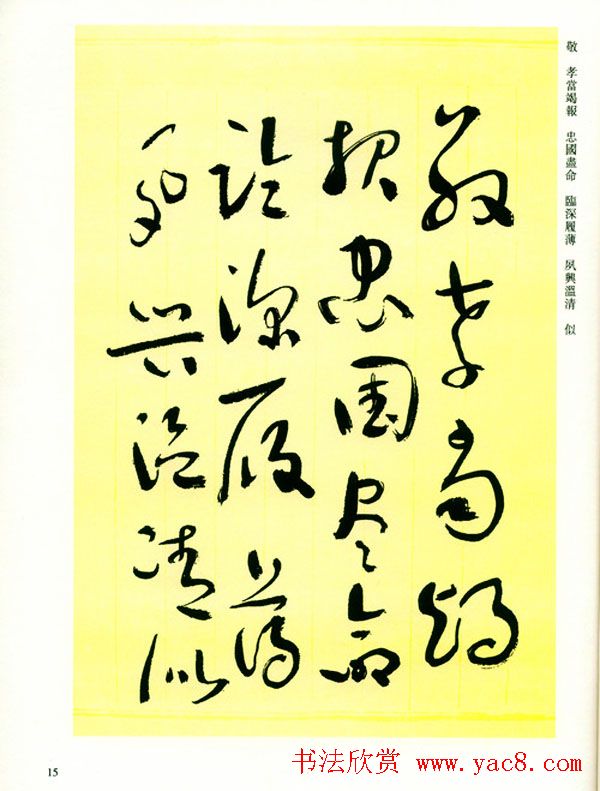 敬　孝當竭報　忠國盡命　臨深履薄　夙興溫清　似
敬孝當竭
報忠國盡命
臨深履薄
夙興溫清似
15
书法欣赏 www.yac8.com